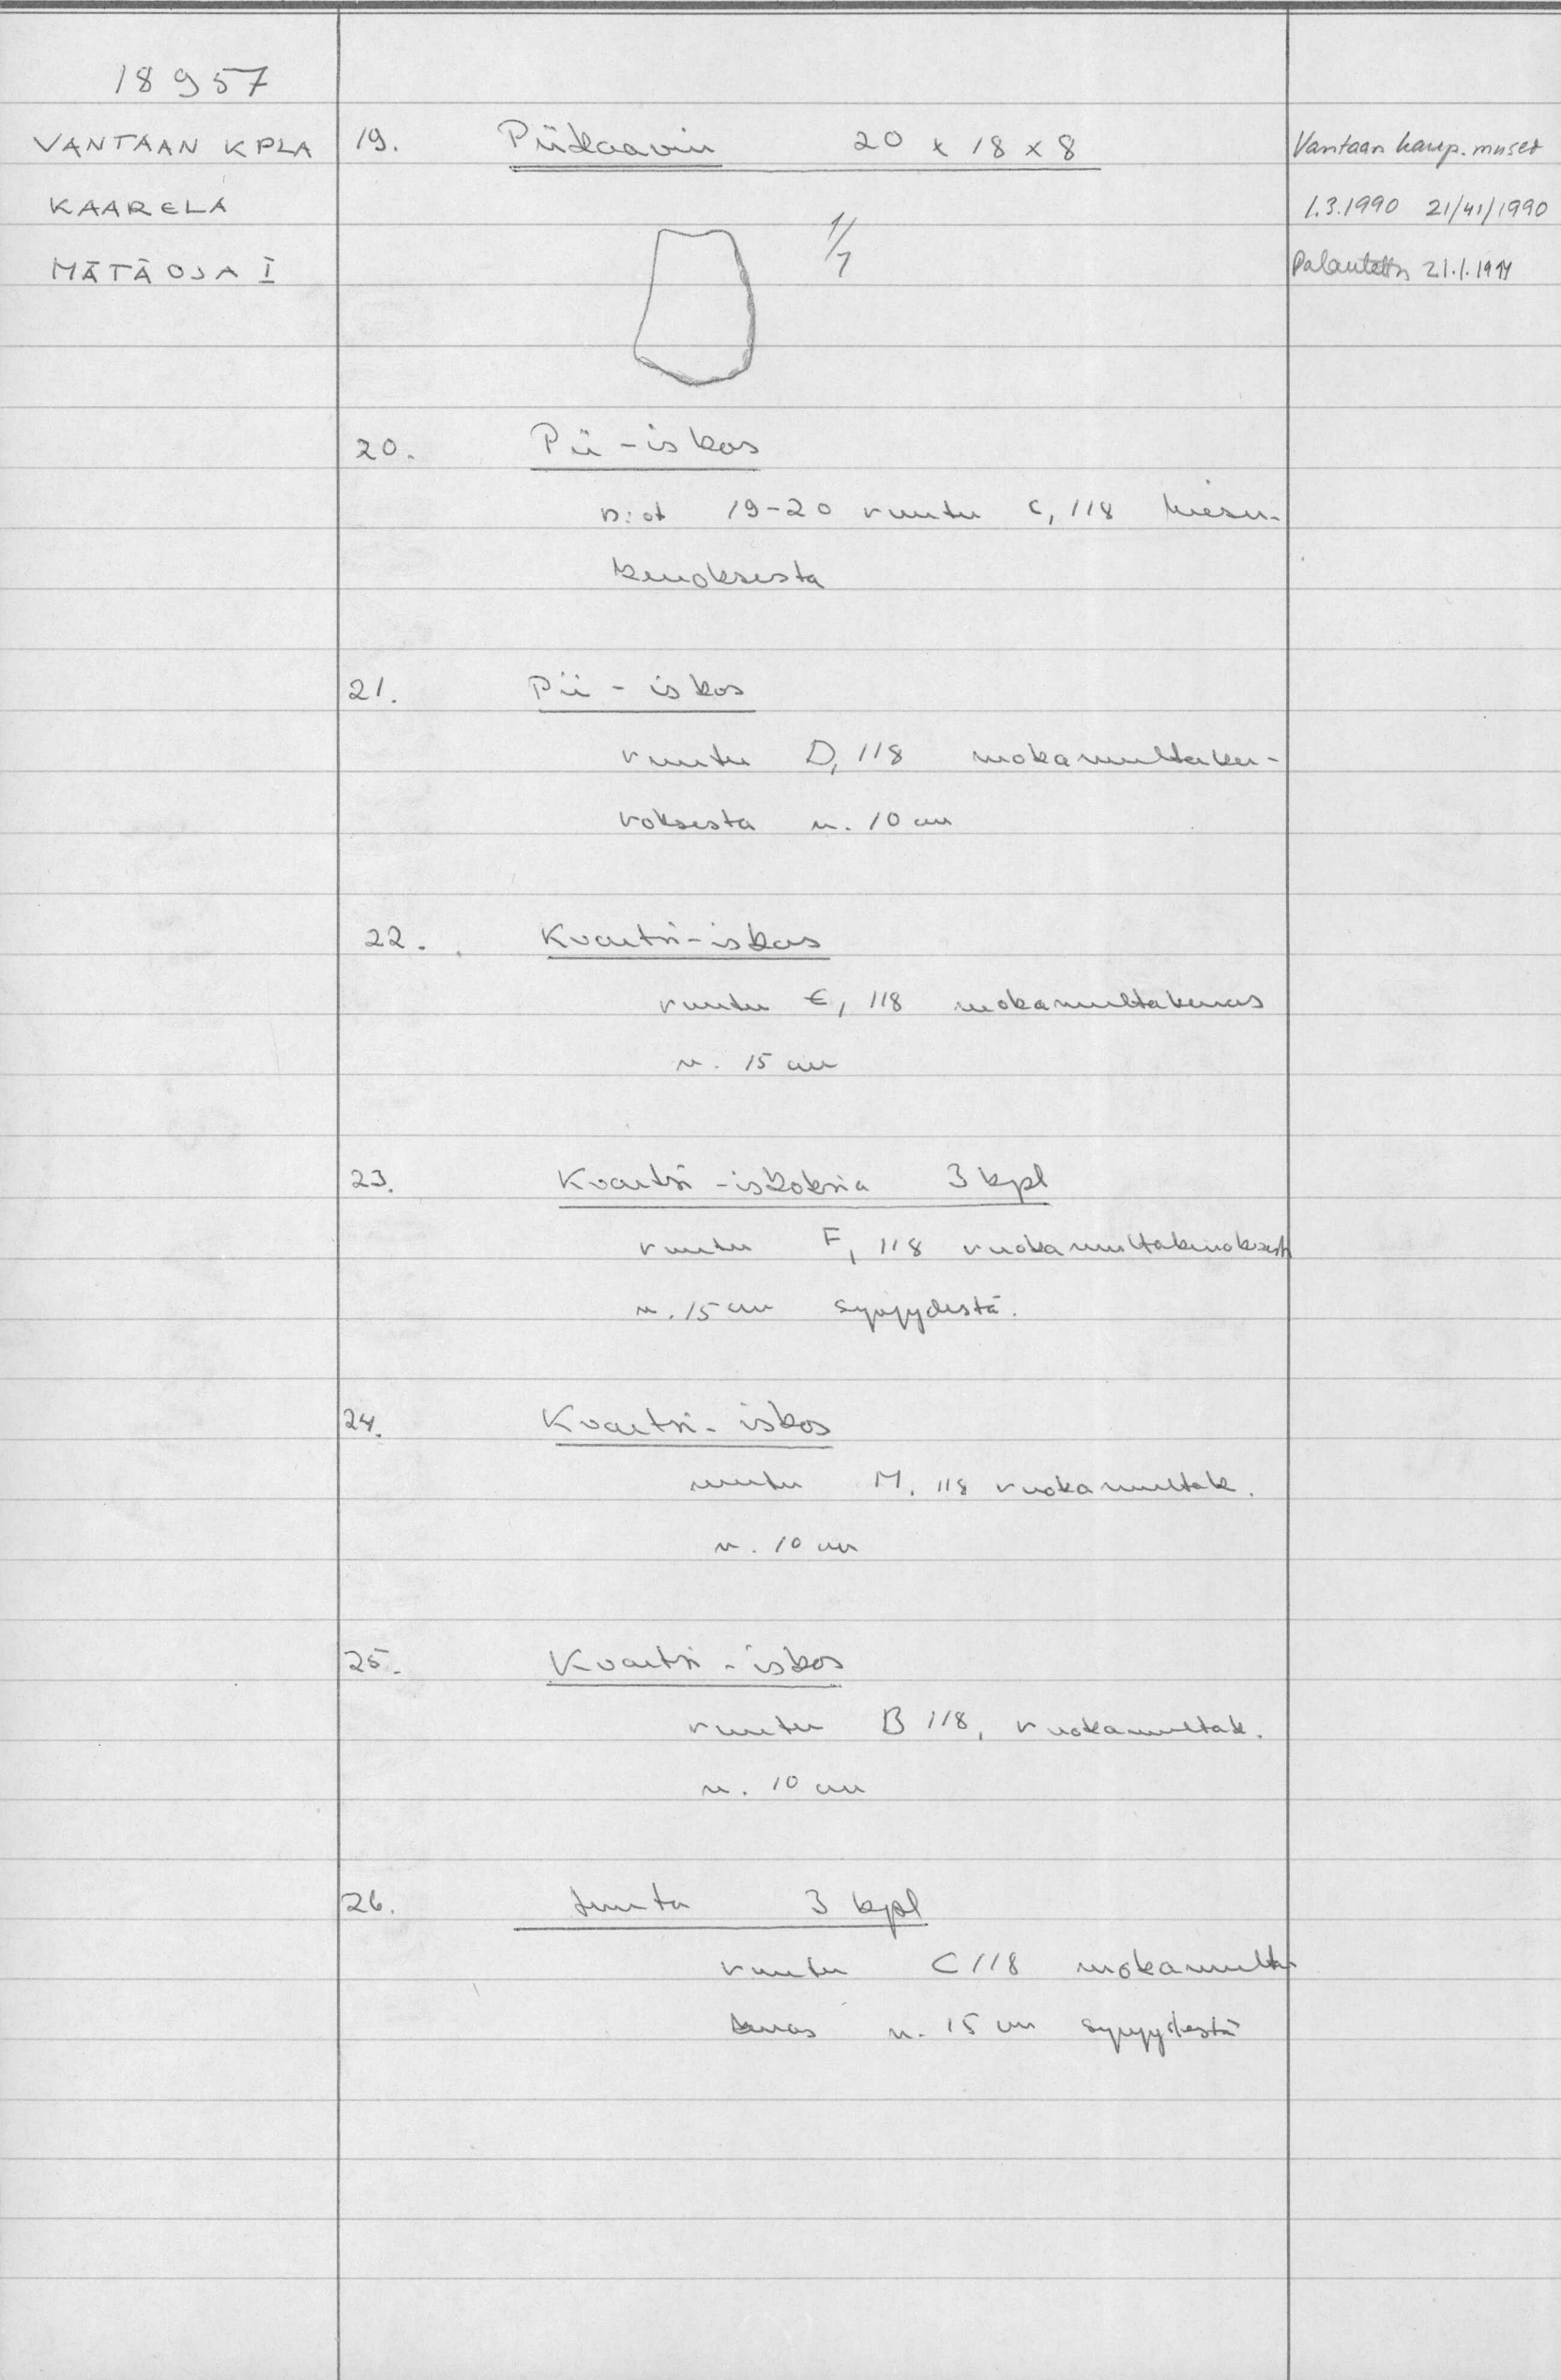 18957
VANTAAN KPLA
KAARELA
MÄTÄOJA I
19. Piikaavin 20 x 18 x 8
1/1
Vantaan kaup. museo
1.3.1990 21/41/1990
Palautettu 21.1.1991
20. Pii-iskos
n:ot 19-20 ruutu C, 118 hiesu-
kerroksesta
21. Pii-iskos
ruutu D, 118 ruokamultaker-
roksesta n. 10 cm
22. Kvartsi-iskos
ruutu E, 118 ruokamultakerros
n. 15 cm
23. Kvartsi-iskoksia 3 kpl
ruutu F, 118 ruokamultakerroksesta
n. 15 cm syvyydestä.
24. Kvartsi-iskos
ruutu M, 118 ruokamultak.
n. 10 cm
25. Kvartsi-iskos
ruutu B 118, ruokamultak.
n. 10 cm
26. Luuta 3 kpl
ruutu C 118 ruokamulta
kerros n. 15 cm syvyydestä